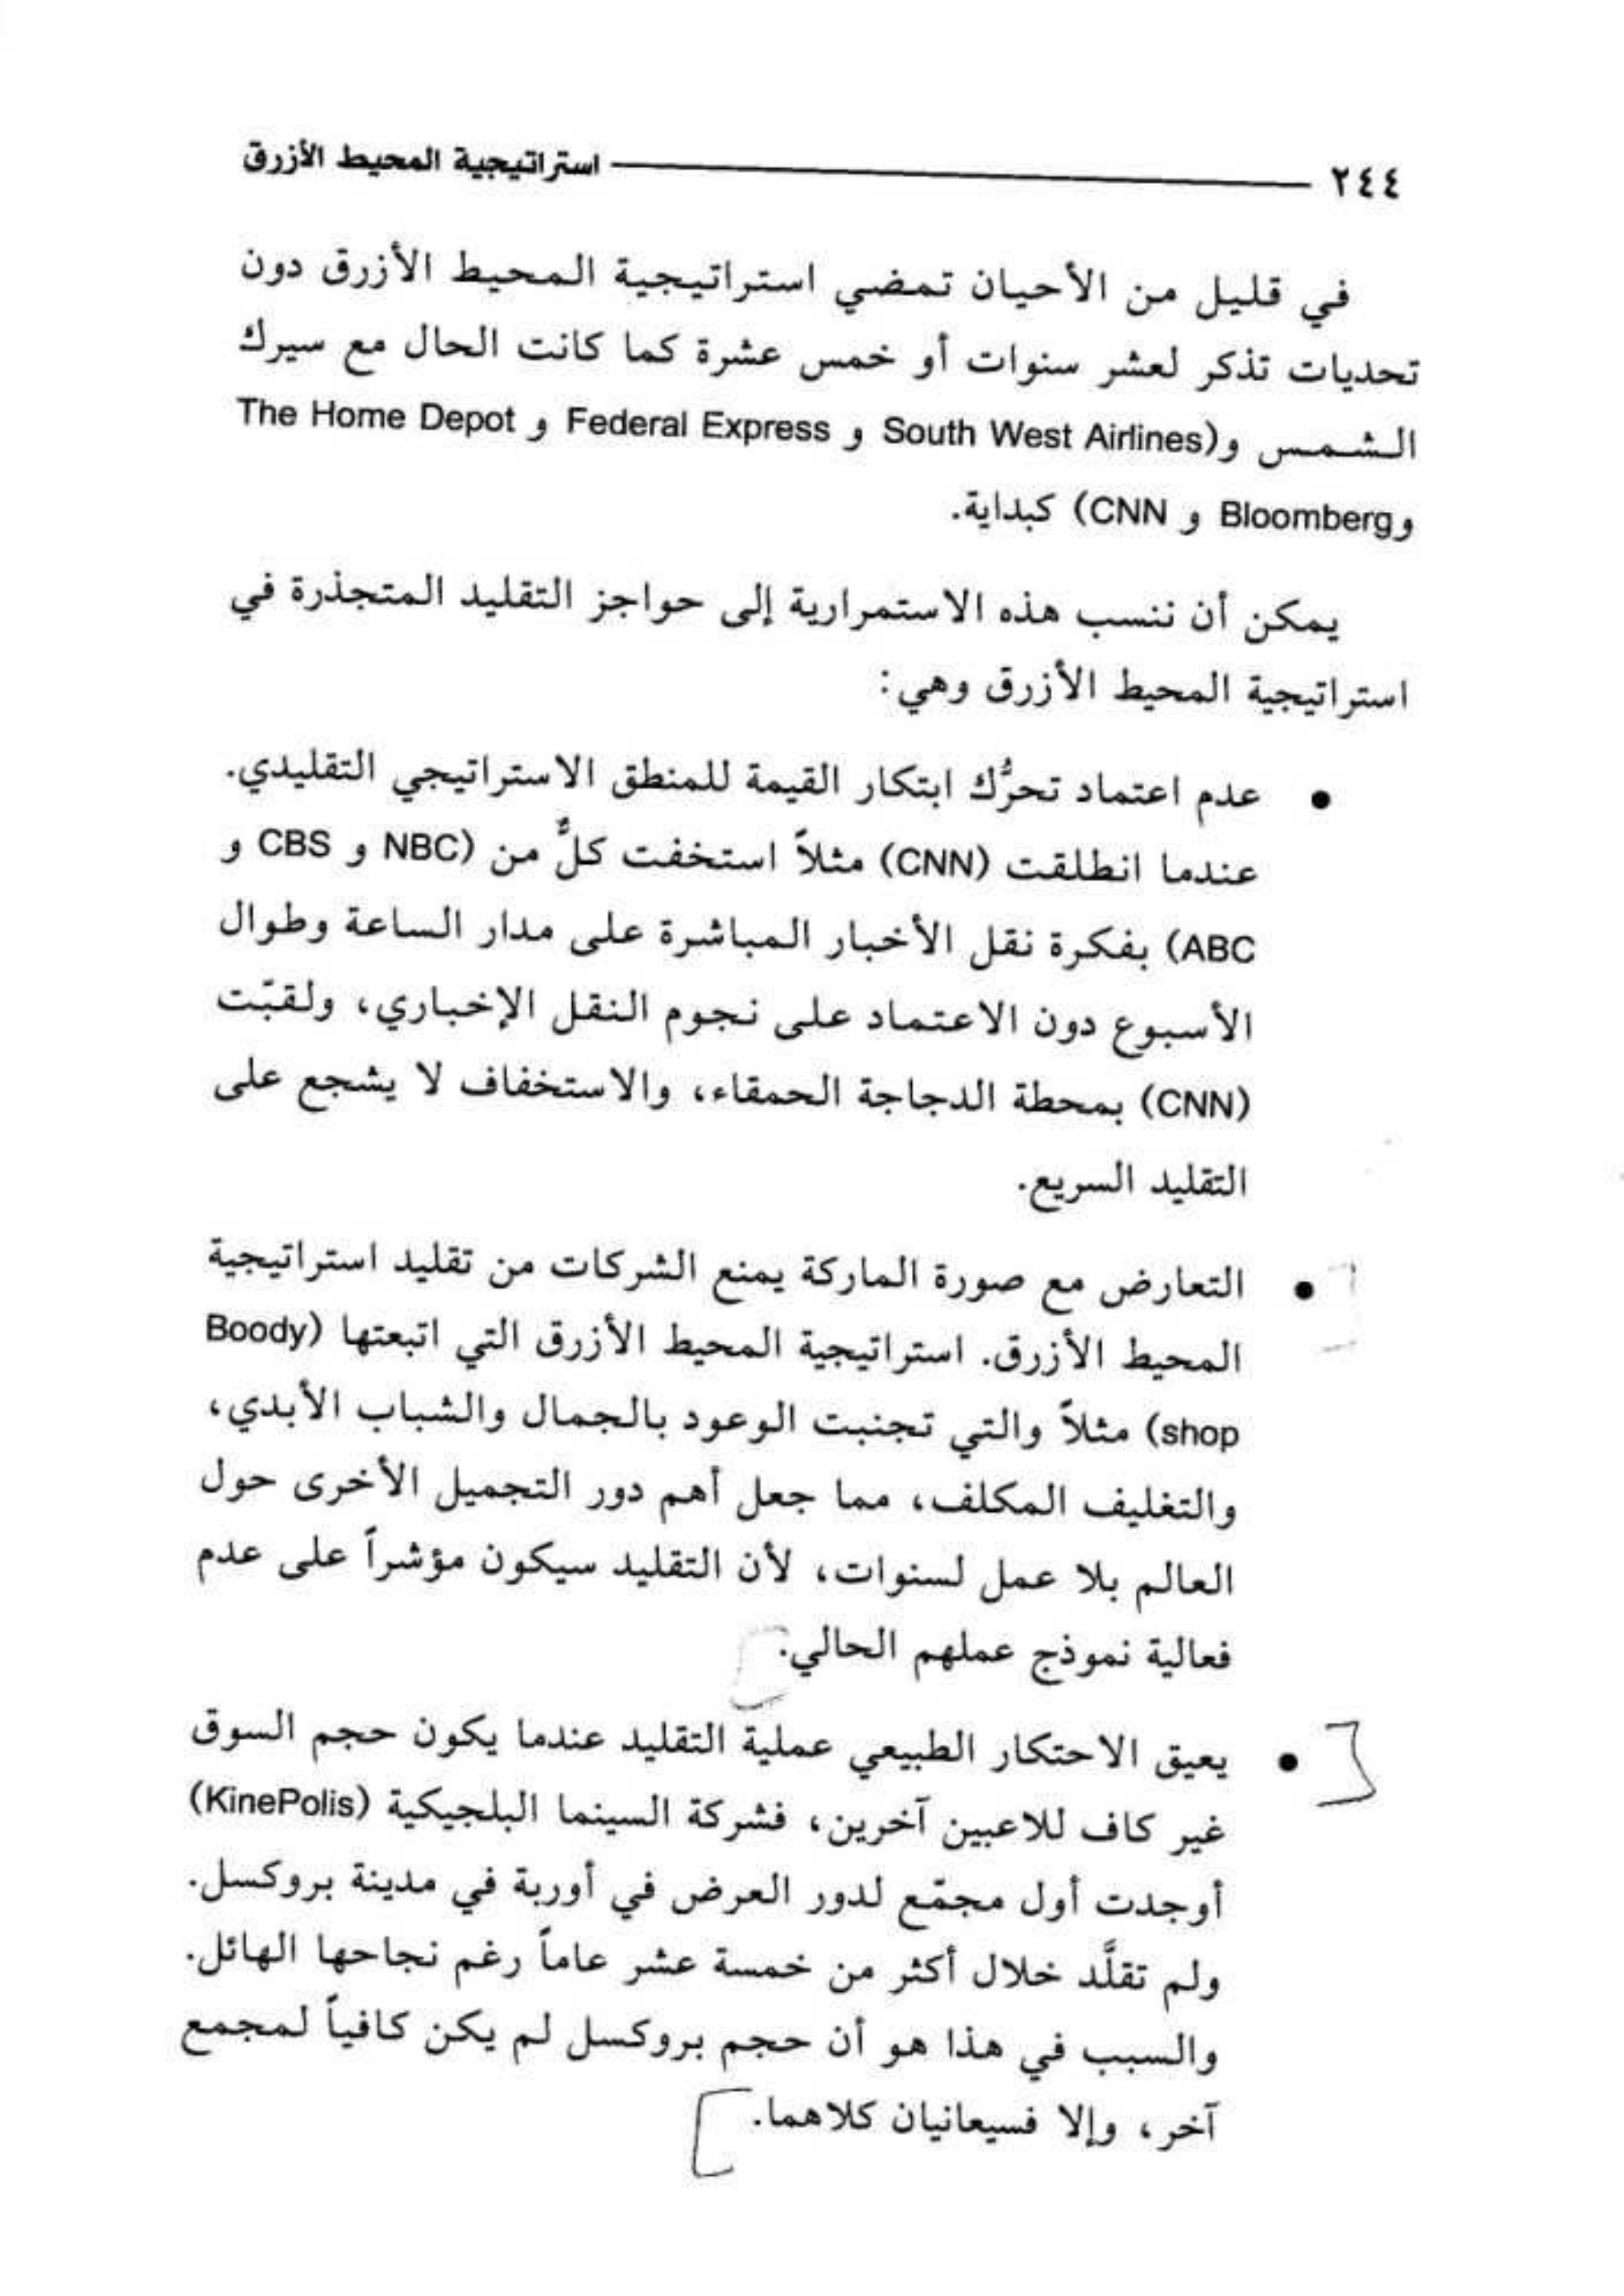 ٢٤٤ استراتيجية المحيط الأزرق
في قليل من الأحيان تمضي استراتيجية المحيط الأزرق دون
تحديات تذكر لعشر سنوات أو خمس عشرة كما كانت الحال مع سيرك
الشمس و(South West Airlines و Federal Express و The Home Depot
وBloomberg و CNN) كبداية.
يمكن أن ننسب هذه الاستمرارية إلى حواجز التقليد المتجذرة في
استراتيجية المحيط الأزرق وهي:
• عدم اعتماد تحرُّك ابتكار القيمة للمنطق الاستراتيجي التقليدي.
عندما انطلقت (CNN) مثلاً استخفت كلٌّ من (NBC و CBS و
ABC) بفكرة نقل الأخبار المباشرة على مدار الساعة وطوال
الأسبوع دون الاعتماد على نجوم النقل الإخباري، ولقبّت
(CNN) بمحطة الدجاجة الحمقاء، والاستخفاف لا يشجع على
التقليد السريع.
• التعارض مع صورة الماركة يمنع الشركات من تقليد استراتيجية
المحيط الأزرق. استراتيجية المحيط الأزرق التي اتبعتها (Boody
shop) مثلاً والتي تجنبت الوعود بالجمال والشباب الأبدي،
والتغليف المكلف، مما جعل أهم دور التجميل الأخرى حول
العالم بلا عمل لسنوات، لأن التقليد سيكون مؤشراً على عدم
فعالية نموذج عملهم الحالي.
• يعيق الاحتكار الطبيعي عملية التقليد عندما يكون حجم السوق
غير كاف للاعبين آخرين، فشركة السينما البلجيكية (KinePolis)
أوجدت أول مجمّع لدور العرض في أوربة في مدينة بروكسل.
ولم تقلَّد خلال أكثر من خمسة عشر عاماً رغم نجاحها الهائل.
والسبب في هذا هو أن حجم بروكسل لم يكن كافياً لمجمع
آخر، وإلا فسيعانيان كلاهما.